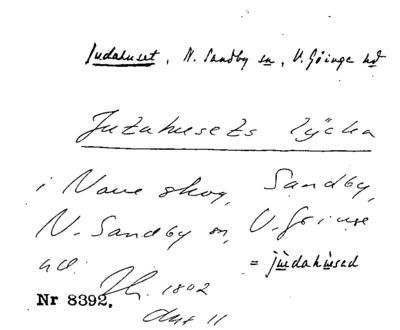 Judahuset, N. Sandby sn, V. Göinge hd
Jutahusets lycka
i Nave skog, Sandby,
N. Sandby sn, V. Göinge
hd.
= jùdahùsed
1802
Nr 8392.
Akt 11